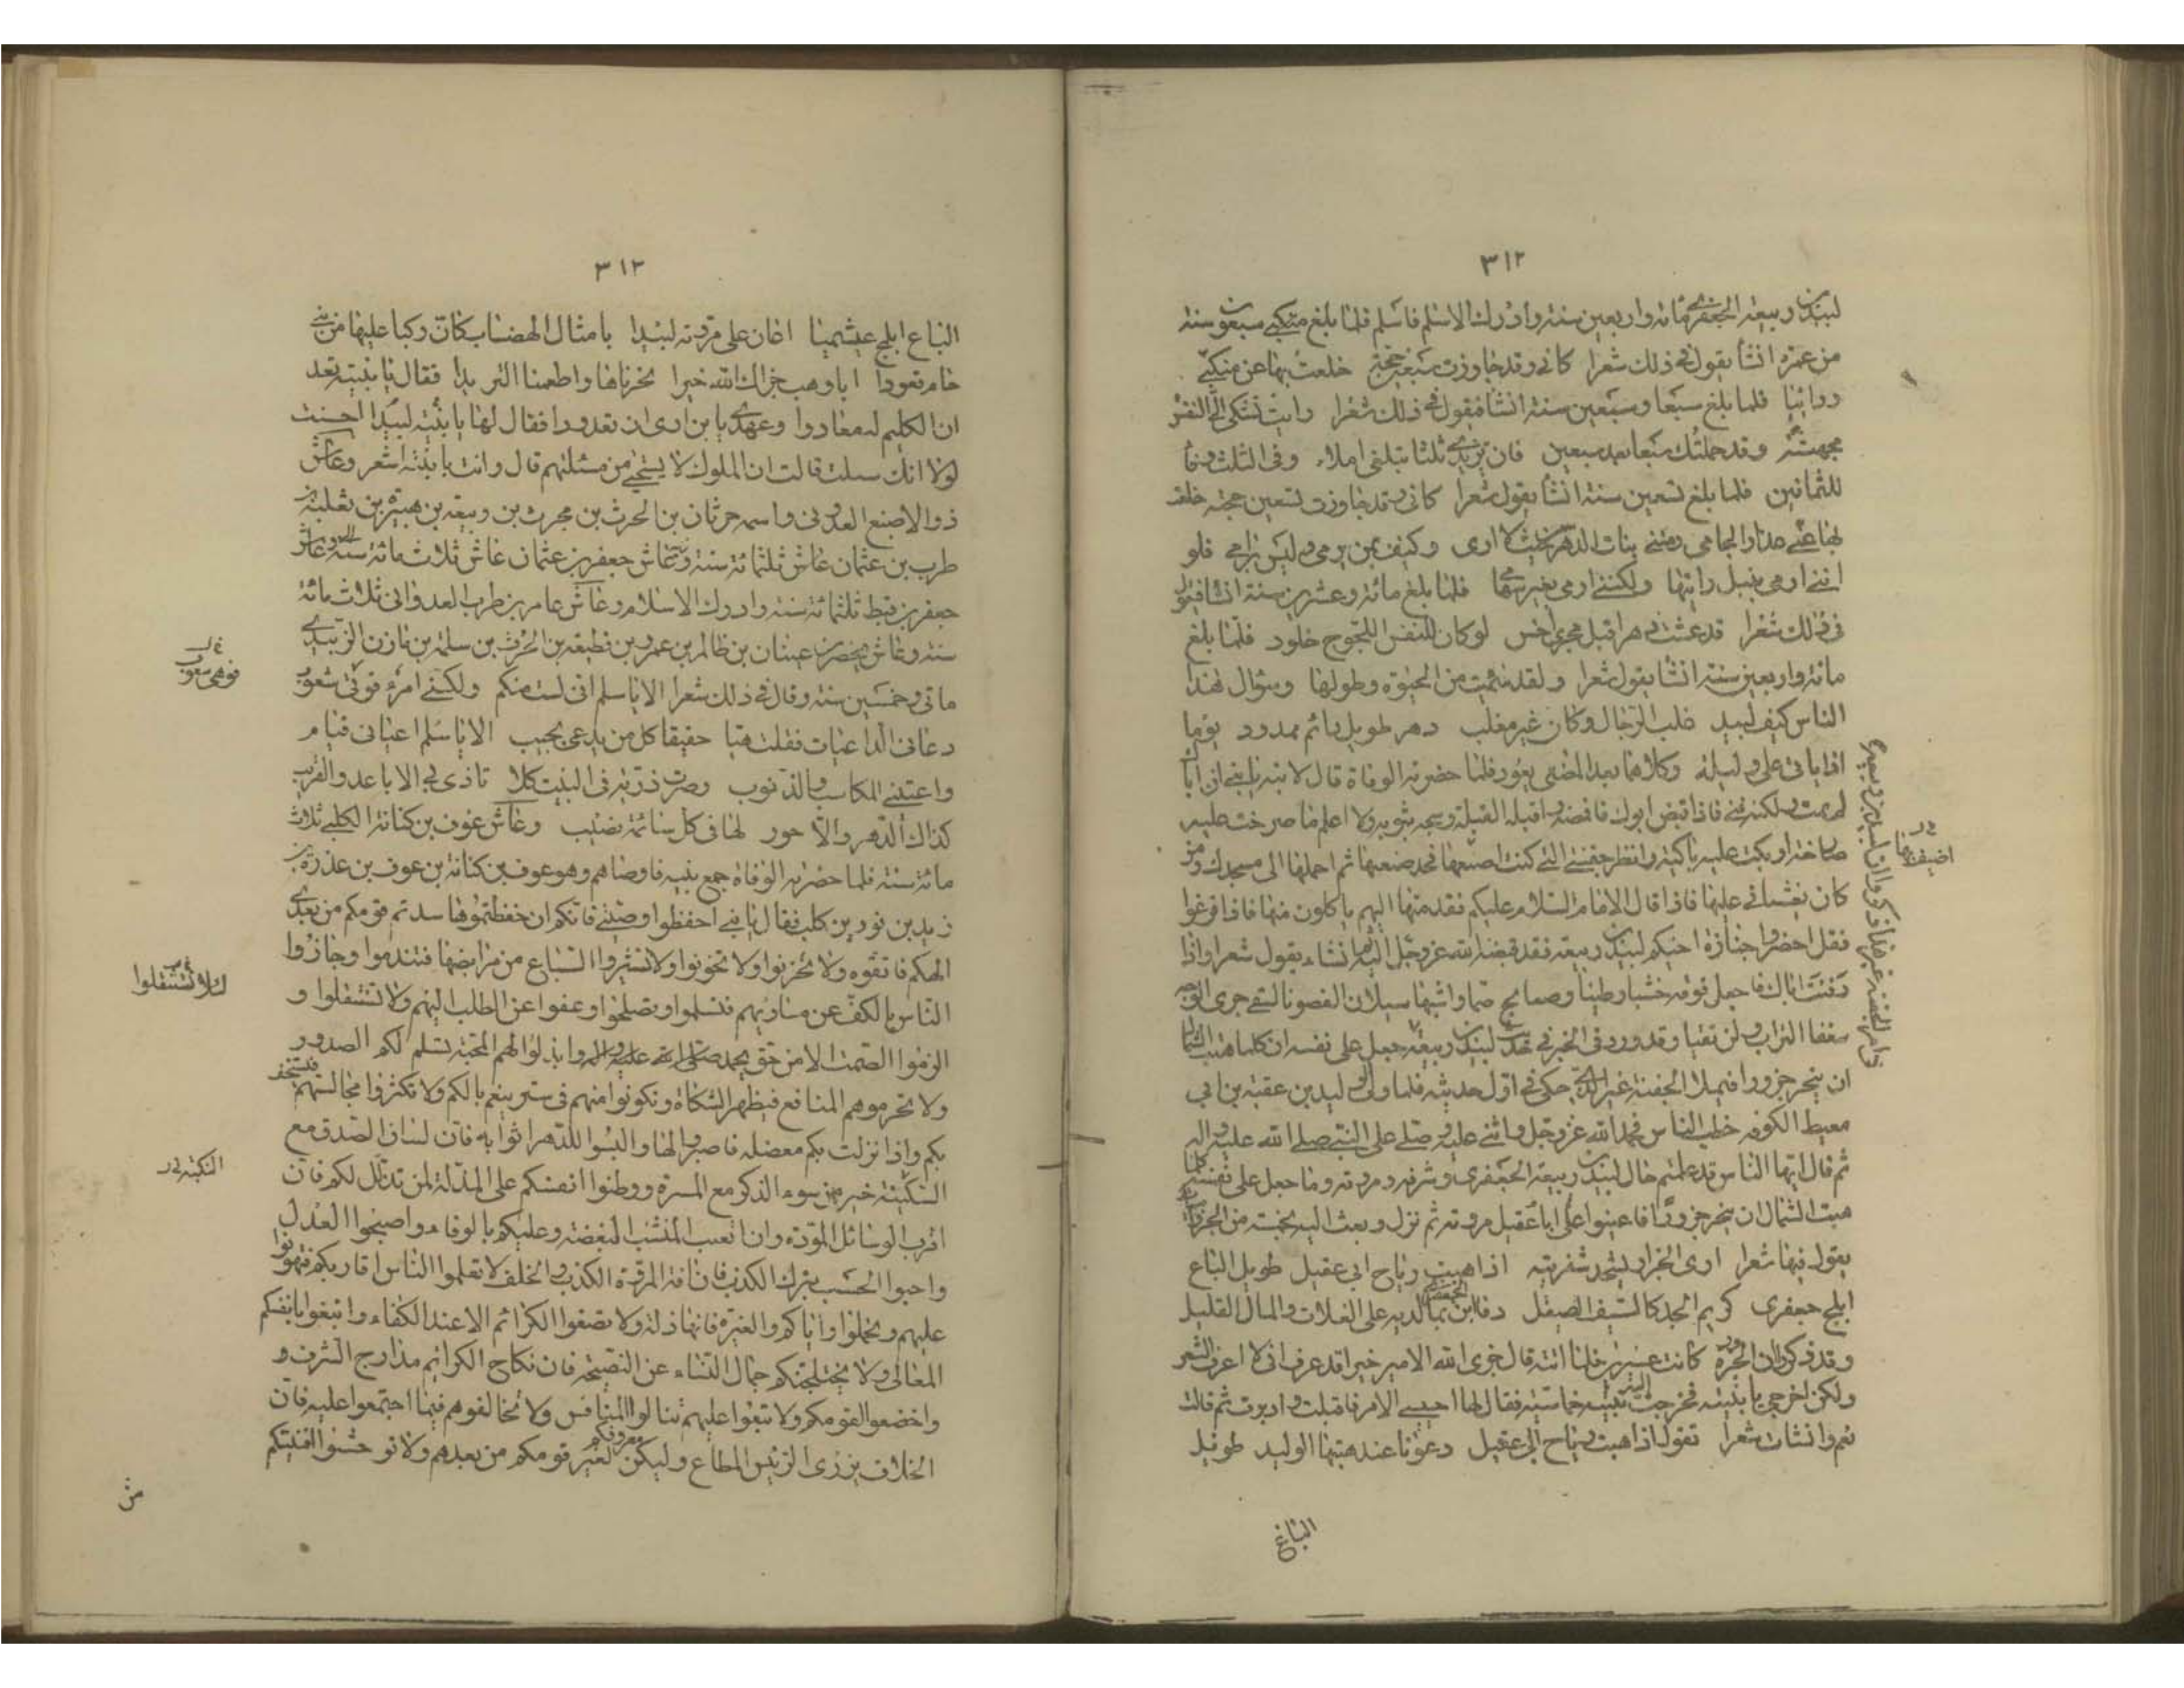 ٣١٢
لبيد بن ربيعة الجعفري مائة واربعين سنة وادرك الاسلام فاسلم فلما بلغ سبعون سنة
من عمره انشأ يقول في ذلك شعرا كاني وقد جاوزت سبعين حجة خلعت بها عن منكبي
ردائيا فلما بلغ سبعا وسبعين سنة انشأ يقول في ذلك شعرا باتت تشكى الي النفس
مجهشة وقد حملتك سبعا بعد سبعين فان تزيدي ثلثا تبلغي املا وفي الثلث وفا
للثمانين فلما بلغ تسعين سنة انشأ يقول شعرا كاني وقد جاوزت تسعين حجة خلعت
بها عني عذار لجامي رمتني بنات الدهر من حيث لا ارى وكيف بمن يرمى وليس برامي فلو
انني ارمى بنبل رايتها ولكنني ارمى بغير سهام فلما بلغ مائة وعشرين سنة انشأ يقول
في ذلك شعرا قد عشت دهرا قبل مجرى داحس لو كان للنفس اللجوج خلود فلما بلغ
مائة واربعين سنة انشأ يقول شعرا ولقد سئمت من الحيوة وطولها وسؤال هذا
الناس كيف لبيد غلب الرجال وكان غير مغلب دهر طويل دائم ممدود يوما
اذا ياتي علي وليلة وكلاهما بعد المضي يعود فلما حضرته الوفاة قال لابنه يا بني ان اباك
لم يمت ولكنه فني فاذا قبض ابوك فاغمضه واقبله القبلة وسجه بثوبه ولا اعلم ما صرخت عليه
صارخة او بكت عليه باكية وانظر جفنتي التي كنت اضيف بها فاجد صنعتها ثم احملها الى مسجدك ومن
كان يغشاني عليها فاذا قال الامام السلام عليكم فقدمها اليهم ياكلون منها فاذا فرغوا
فقل احضروا جنازة اخيكم لبيد بن ربيعة فقد قبضه الله عز وجل اليه ثم انشاء يقول شعرا واذا
دفنت اباك فاجعل فوقه خشبا وطينا وصفائح صما رواسيها
سفساف التراب ولن يقيا وقد ورد في الخبر في حديث لبيد بن ربيعة جعل على نفسه ان كلما هبت الشمال
ان ينحر جزورا فيملأ الجفنة غير الذي حكي في اول حديثه فلما ولي الوليد بن عقبة بن ابي
معيط الكوفة خطب الناس فحمد الله عز وجل واثنى عليه وصلى على النبي صلى الله عليه واله
ثم قال ايها الناس قد علمتم حال لبيد بن ربيعة الجعفري وشرفه ومروته وما جعل على نفسه كلما
هبت الشمال ان ينحر جزورا فاعينوا على ابا عقيل مروته ثم نزل وبعث اليه بخمسة من الجزر
يقول فيها شعرا ارى الجزار يشحذ شفرتيه اذا هبت رياح ابي عقيل طويل الباع
ابلج جعفري كريم الجد كالسيف الصيقل وفا ابن الجعفري بما لديه على العلات والمال القليل
وقد ذكر ان الجزر كانت عشرين فلما اتته قال جزى الله الامير خيرا قد عرف اني لا اعرف الشعر
ولكن اخرجي يا بنية فخرجت اليه بنية خماسية فقال لها اجيبي الامير فاقبلت وادبرت ثم قالت
نعم وانشأت شعرا تقول اذا هبت رياح ابي عقيل دعونا عند هبتها الوليد طويل
الباع
اضيف بها
٣١٣
الباع ابلج عبشميا اعان على مروته لبيدا بامثال الهضاب كان ركبا عليها من بني
حام قعودا ابا وهب جزاك الله خيرا نحرناها واطعمنا الثريدا فقال يا بنية فعد
ان الكريم له معاد وعهدي يا بن اروى ان تعودا فقال لها يا بنية لبيد احسنت
لولا انك سالت قالت ان الملوك لا يستحيى من مسئلتهم قال وانت يا بنية اشعر وعاش
ذو الاصبع العدواني واسمه حرثان بن الحرث بن محرث بن ربيعة بن هبيرة بن ثعلبة بن
ظرب بن عثمان عاش ثلثمائة سنة وعاش جعفر بن عثمان عاش ثلاث مائة سنة وعاش
جعفر بن قبط ثلثمائة سنة وادرك الاسلام وعاش عامر بن ظرب العدواني ثلاث مائة
سنة وعاش محصن بن عتبان بن ظالم بن عمرو بن قطيعة بن الحرث بن سلمة بن مازن الزبيدي
مائتي وخمسين سنة وقال في ذلك شعرا الا يا سلم اني لست منكم ولكني امرء قوتي شعوب
دعاني الداعيات فقلت هيا حقيقا كل من يدعى يجيب الا يا سلم اعياني قيام
واعيتني المكاسب والذنوب وصرت رذية في البيت كلا تاذى بي الاباعد والقريب
كذاك الدهر والا حور لها في كل سائمة نصيب وعاش عوف بن كنانة الكلبي ثلاث
مائة سنة فلما حضرته الوفاة جمع بنيه فاوصاهم وهو عوف بن كنانة بن عوف بن عذرة بن
زيد بن ثور بن كلب فقال يا بني احفظوا وصيتي فانكم ان حفظتموها سدتم قومكم من بعدي
الهكم فاتقوه ولا تحزنوا ولا تخونوا ولا تستثيروا السباع من مرابضها فتندموا وجازوا
الناس بالكف عن مساويهم فتسلموا وتصلحوا وعفوا عن الطلب اليهم ولا تستثقلوا و
الزموا الصمت الا من حق بحمد صلى الله عليه واله وابذلوا لهم المحبة تسلم لكم الصدور
ولا تحرموهم المنافع فيظهر الشكاة وتكونوا منهم في ستر ينعم بالكم ولا تكثروا مجالستهم فتستخف
بكم واذا نزلت بكم معضلة فاصبروا لها والبسوا للدهر اثوابه فان لسان الصدق مع
السكينة خير من سوء الذكر مع المسرة ووطنوا انفسكم على المذلة لمن تذلل لكم فان
اقرب الوسائل المودة وان اتعب النشب البغضة وعليكم بالوفاء واصبحوا العدل
واحبوا الحسب بترك الكذب فان افة المروة الكذب والخلف لا تعلموا الناس اقاربكم فتهونوا
عليهم وتخملوا واياكم والغربة فانها ذلة ولا تضعوا الكرائم الا عند الاكفاء وابتغوا بانفسكم
المعالي ولا يختلجنكم جمال النساء عن النصيحة فان نكاح الكرائم مدارج الشرف و
واخضعوا لقومكم ولا تبغوا عليهم تنالوا المنافس ولا تخالفوهم فيما اجتمعوا عليه فان
الخلاف يزري الرئيس المطاع وليكن معروفكم لغير قومكم من بعدهم ولا توحشوا افنيتكم
من
لئلا تستثقلوا